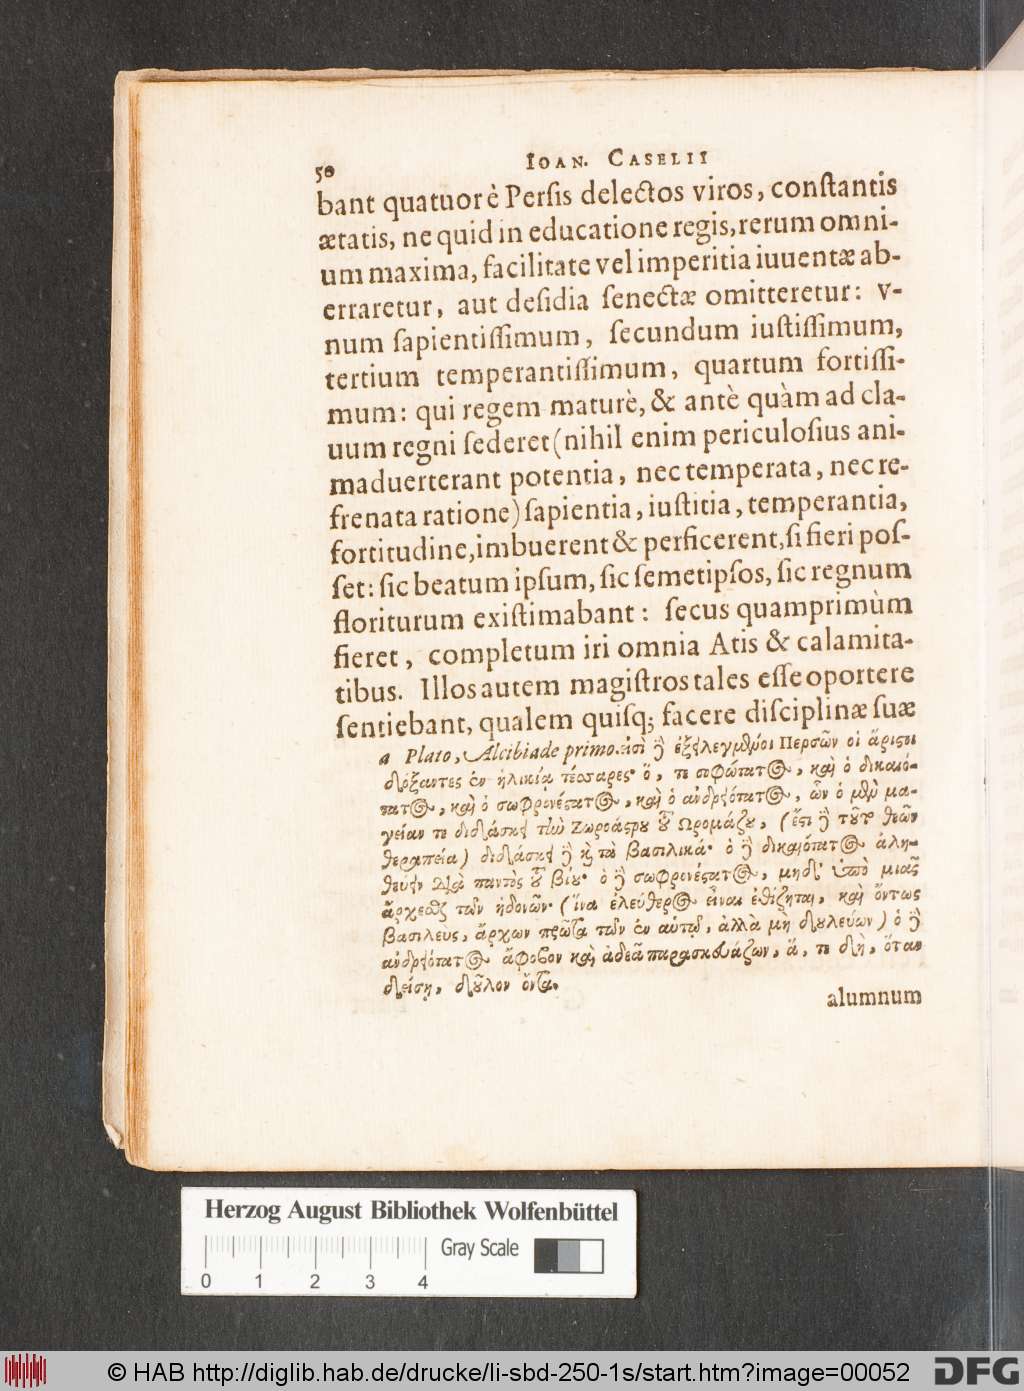 50 IOAN. CASELII
bant quatuor è Persis delectos viros, constantis
ætatis, ne quid in educatione regis, rerum omni-
um maxima, facilitate vel imperitia iuuentæ ab-
erraretur, aut desidia senectæ omitteretur: v-
num sapientissimum, secundum iustissimum,
tertium temperantissimum, quartum fortissi-
mum: qui regem maturè, & antè quàm ad cla-
uum regni sederet (nihil enim periculosius ani-
maduerterant potentia, nec temperata, nec re-
frenata ratione) sapientia, iustitia, temperantia,
fortitudine, imbuerent & perficerent, si fieri pos-
set: sic beatum ipsum, sic semetipsos, sic regnum
floriturum existimabant: secus quamprimùm
fieret, completum iri omnia Atis & calamita-
tibus. Illos autem magistros tales esse oportere
sentiebant, qualem quisq; facere disciplinæ suæ
a Plato, Alcibiade primo. εἰσὶ ἢ ἐξειλεγμένοι Περσῶν οἱ ἄριστοι
δόξαντες ἐν ἡλικίᾳ τέσσαρες· ὅ, τε σοφώτατος, καὶ ὁ δικαιό-
τατος, καὶ ὁ σωφρονέστατος, καὶ ὁ ἀνδρειότατος, ὧν ὁ μὲν μα-
γείαν τε διδάσκει τὴν Ζωροάστρου τοῦ Ωρομάζου, (ἔστι δὲ τοῦτο θεῶν
θεραπεία) διδάσκει δὲ καὶ τὰ βασιλικά· ὁ δὲ δικαιότατος ἀλη-
θεύειν διὰ παντὸς τοῦ βίου· ὁ δὲ σωφρονέστατος, μηδ' ὑπὸ μιᾶς
ἄρχεσθαι τῶν ἡδονῶν· (ἵνα ἐλεύθερος εἶναι ἐθίζηται, καὶ ὄντως
βασιλεὺς, ἄρχων πρῶτα τῶν ἐν αὑτῷ, ἀλλὰ μὴ δουλεύων) ὁ δὲ
ἀνδρειότατος ἄφοβον καὶ ἀδεᾶ παρασκευάζων, ἅ, τε δὴ, ὅταν
δείσῃ, δοῦλον ὄντα.
alumnum
Herzog August Bibliothek Wolfenbüttel
Gray Scale
0 1 2 3 4
© HAB http://diglib.hab.de/drucke/li-sbd-250-1s/start.htm?image=00052
DFG